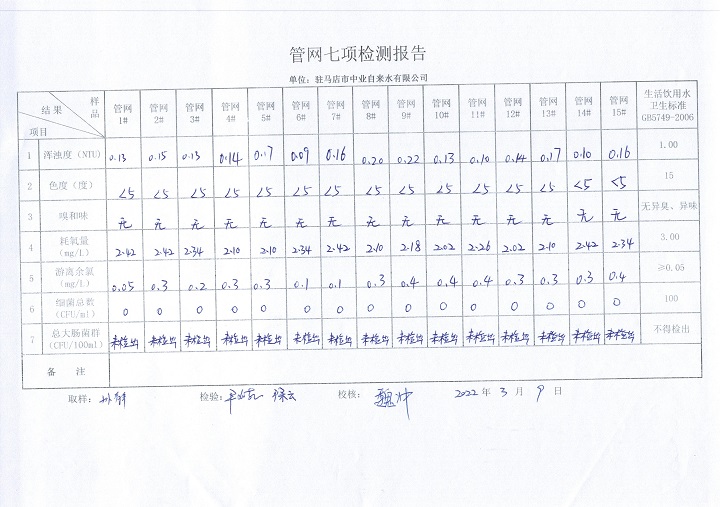 管网七项检测报告
单位：驻马店市中业自来水有限公司
样品 结果 项目 管网1# 管网2# 管网3# 管网4# 管网5# 管网6# 管网7# 管网8# 管网9# 管网10# 管网11# 管网12# 管网13# 管网14# 管网15# 生活饮用水卫生标准GB5749-2006
1 浑浊度（NTU） 0.13 0.15 0.13 0.14 0.17 0.09 0.16 0.20 0.22 0.13 0.10 0.14 0.17 0.10 0.16 1.00
2 色度（度） <5 <5 <5 <5 <5 <5 <5 <5 <5 <5 <5 <5 <5 <5 <5 15
3 嗅和味 无 无 无 无 无 无 无 无 无 无 无 无 无 无 无 无异臭、异味
4 耗氧量（mg/L） 2.42 2.42 2.34 2.10 2.10 2.34 2.42 2.10 2.18 2.02 2.26 2.02 2.10 2.42 2.34 3.00
5 游离余氯（mg/L） 0.05 0.3 0.2 0.3 0.3 0.1 0.1 0.3 0.4 0.4 0.4 0.3 0.3 0.3 0.4 ≥0.05
6 细菌总数（CFU/ml） 0 0 0 0 0 0 0 0 0 0 0 0 0 0 0 100
7 总大肠菌群（CFU/100ml） 未检出 未检出 未检出 未检出 未检出 未检出 未检出 未检出 未检出 未检出 未检出 未检出 未检出 未检出 未检出 不得检出
备 注
取样： 检验： 徐云 校核： 魏冲 2022 年 3 月 9 日